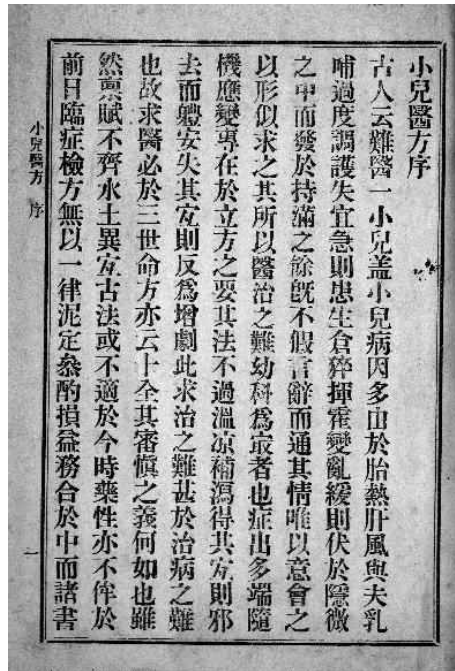 小兒醫方序
古人云難醫一小兒盖小兒病因多由於胎熱肝風與夫乳
哺過度調護失宜急則患生倉猝揮霍變亂緩則伏於隱微
之中而發於持滿之餘旣不假言辭而通其情唯以意會之
以形似求之其所以醫治之難幼科爲㝡者也症出多端隨
機應變專在於立方之要其法不過溫凉補瀉得其宐則邪
去而軆安失其宐則反爲增劇此求治之難甚於治病之難
也故求醫必於三世命方亦云十全其審愼之義何如也雖
然禀賦不齊水土異宐古法或不適於今時藥性亦不侔於
前日臨症檢方無以一律泥定叅酌損益務合於中而諸書
小兒醫方 序
一